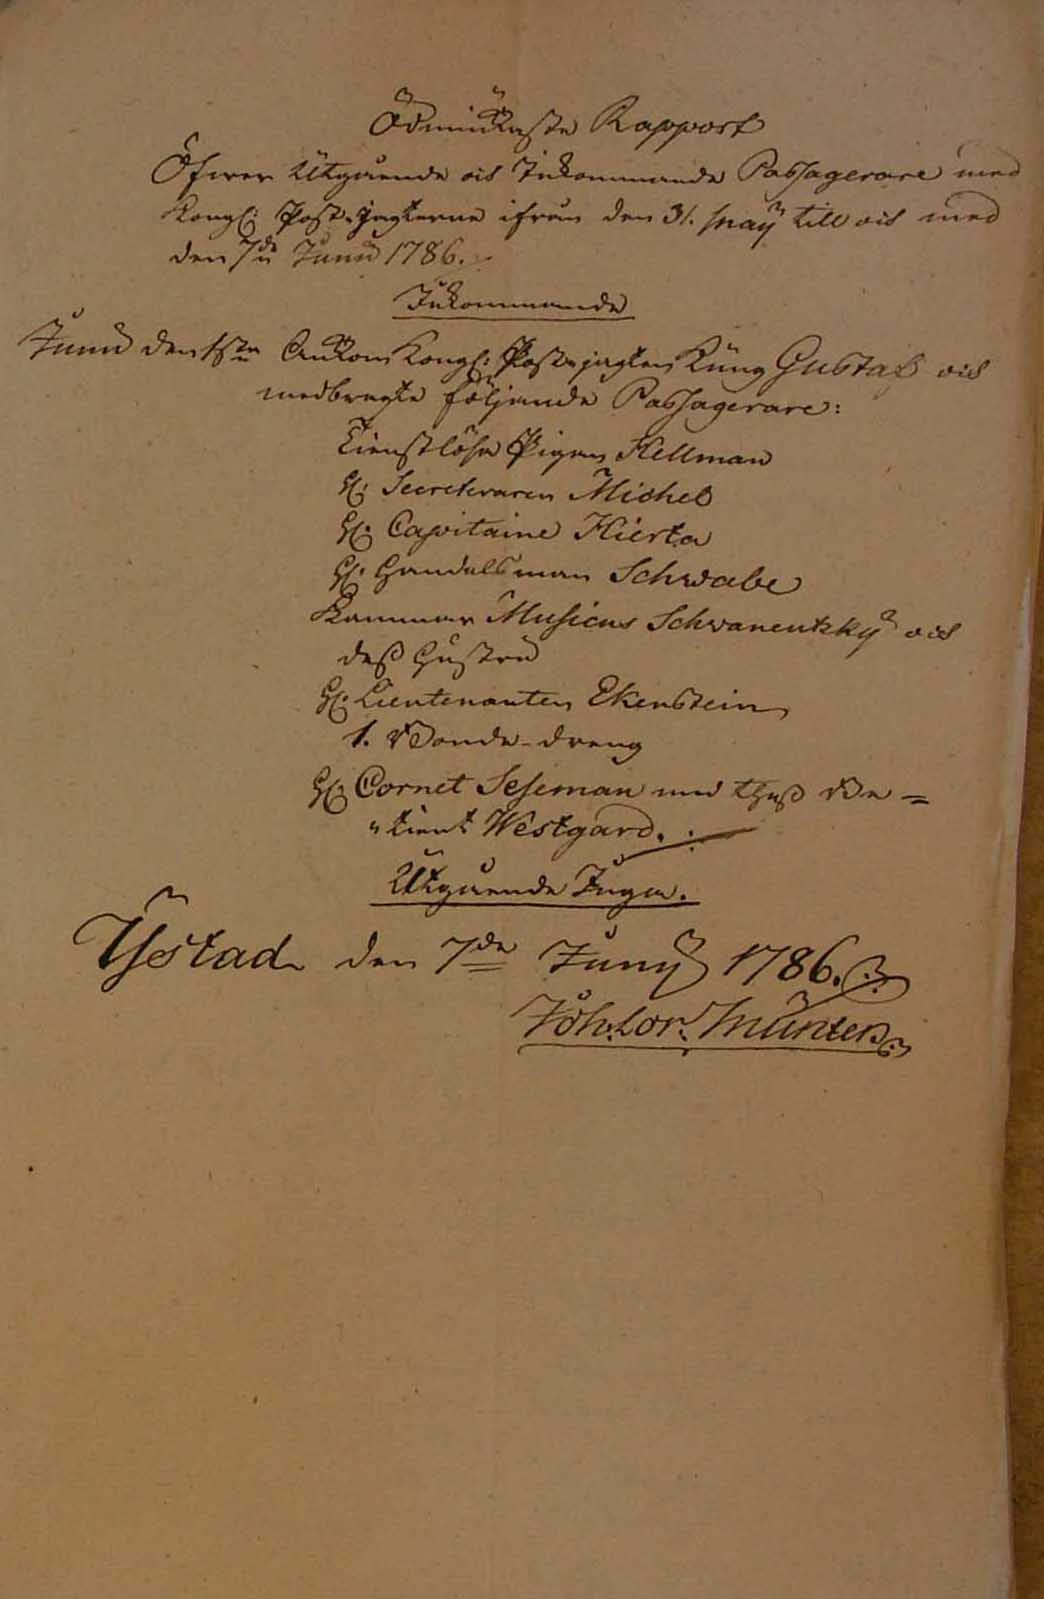 Ödmiukaste Rapport
Öfwer Utgående och Inkommande Passagerare med
Kongl: Post-Jagterne ifrån den 31. Maÿ till och med
den 7de Junii 1786.
Inkommande
Junii den 1ste Ankom Kongl: Post-jagten Kung Gustaf och
medbragte följande Passagerare:
Tienstlösa Pigan Hellman
H: Secreteraren Michel
H: Capitaine Hierta
H: Handelsman Schwabe
Kammar Musicus Schwanentzkÿ och
dess Hustru
H: Lieutenanten Ekenstein
1. Bonde-dreng
H: Cornet Seseman med thess Be=
"tient Westgard.
Utgående Inga.
Ystad den 7de Junÿ 1786.
Joh: Lor: Münter